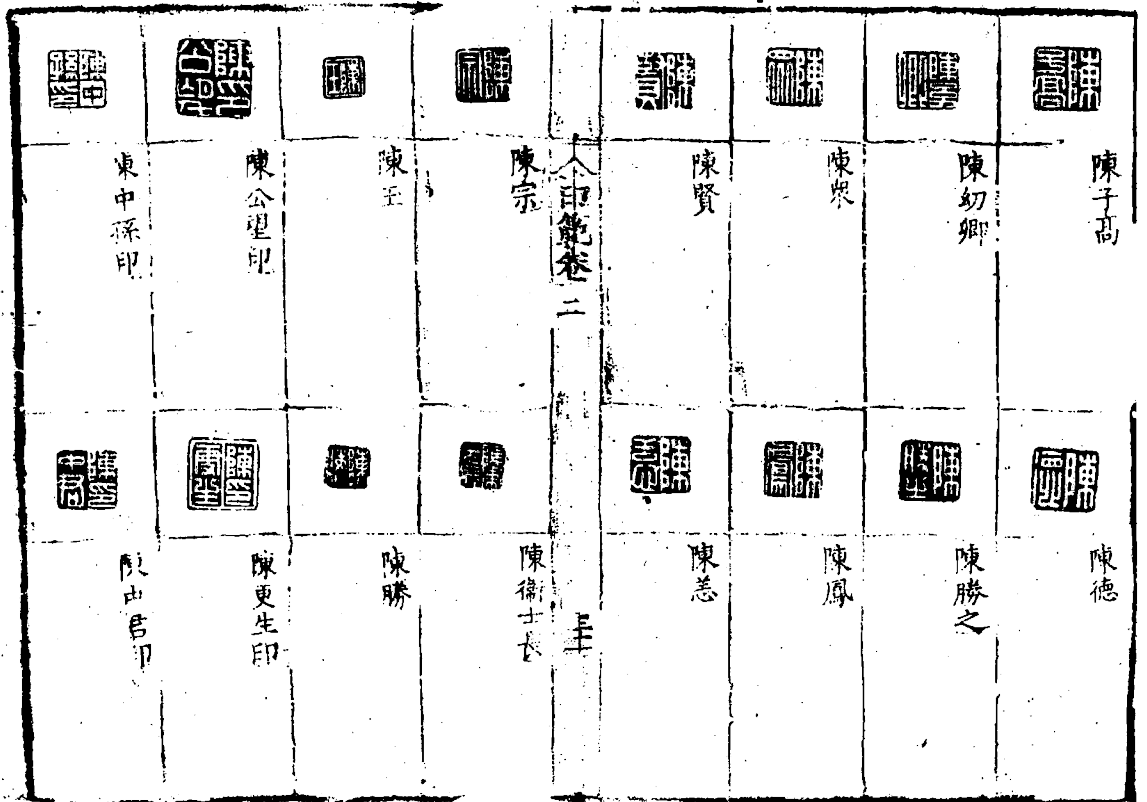 陳子高
陳幼卿
陳眾
陳賢
陳德
陳勝之
陳鳳
陳恙
印範卷二
陳宗
陳王
陳公望印
陳中孫印
陳衛士長
陳勝
陳更生印
陳中君印